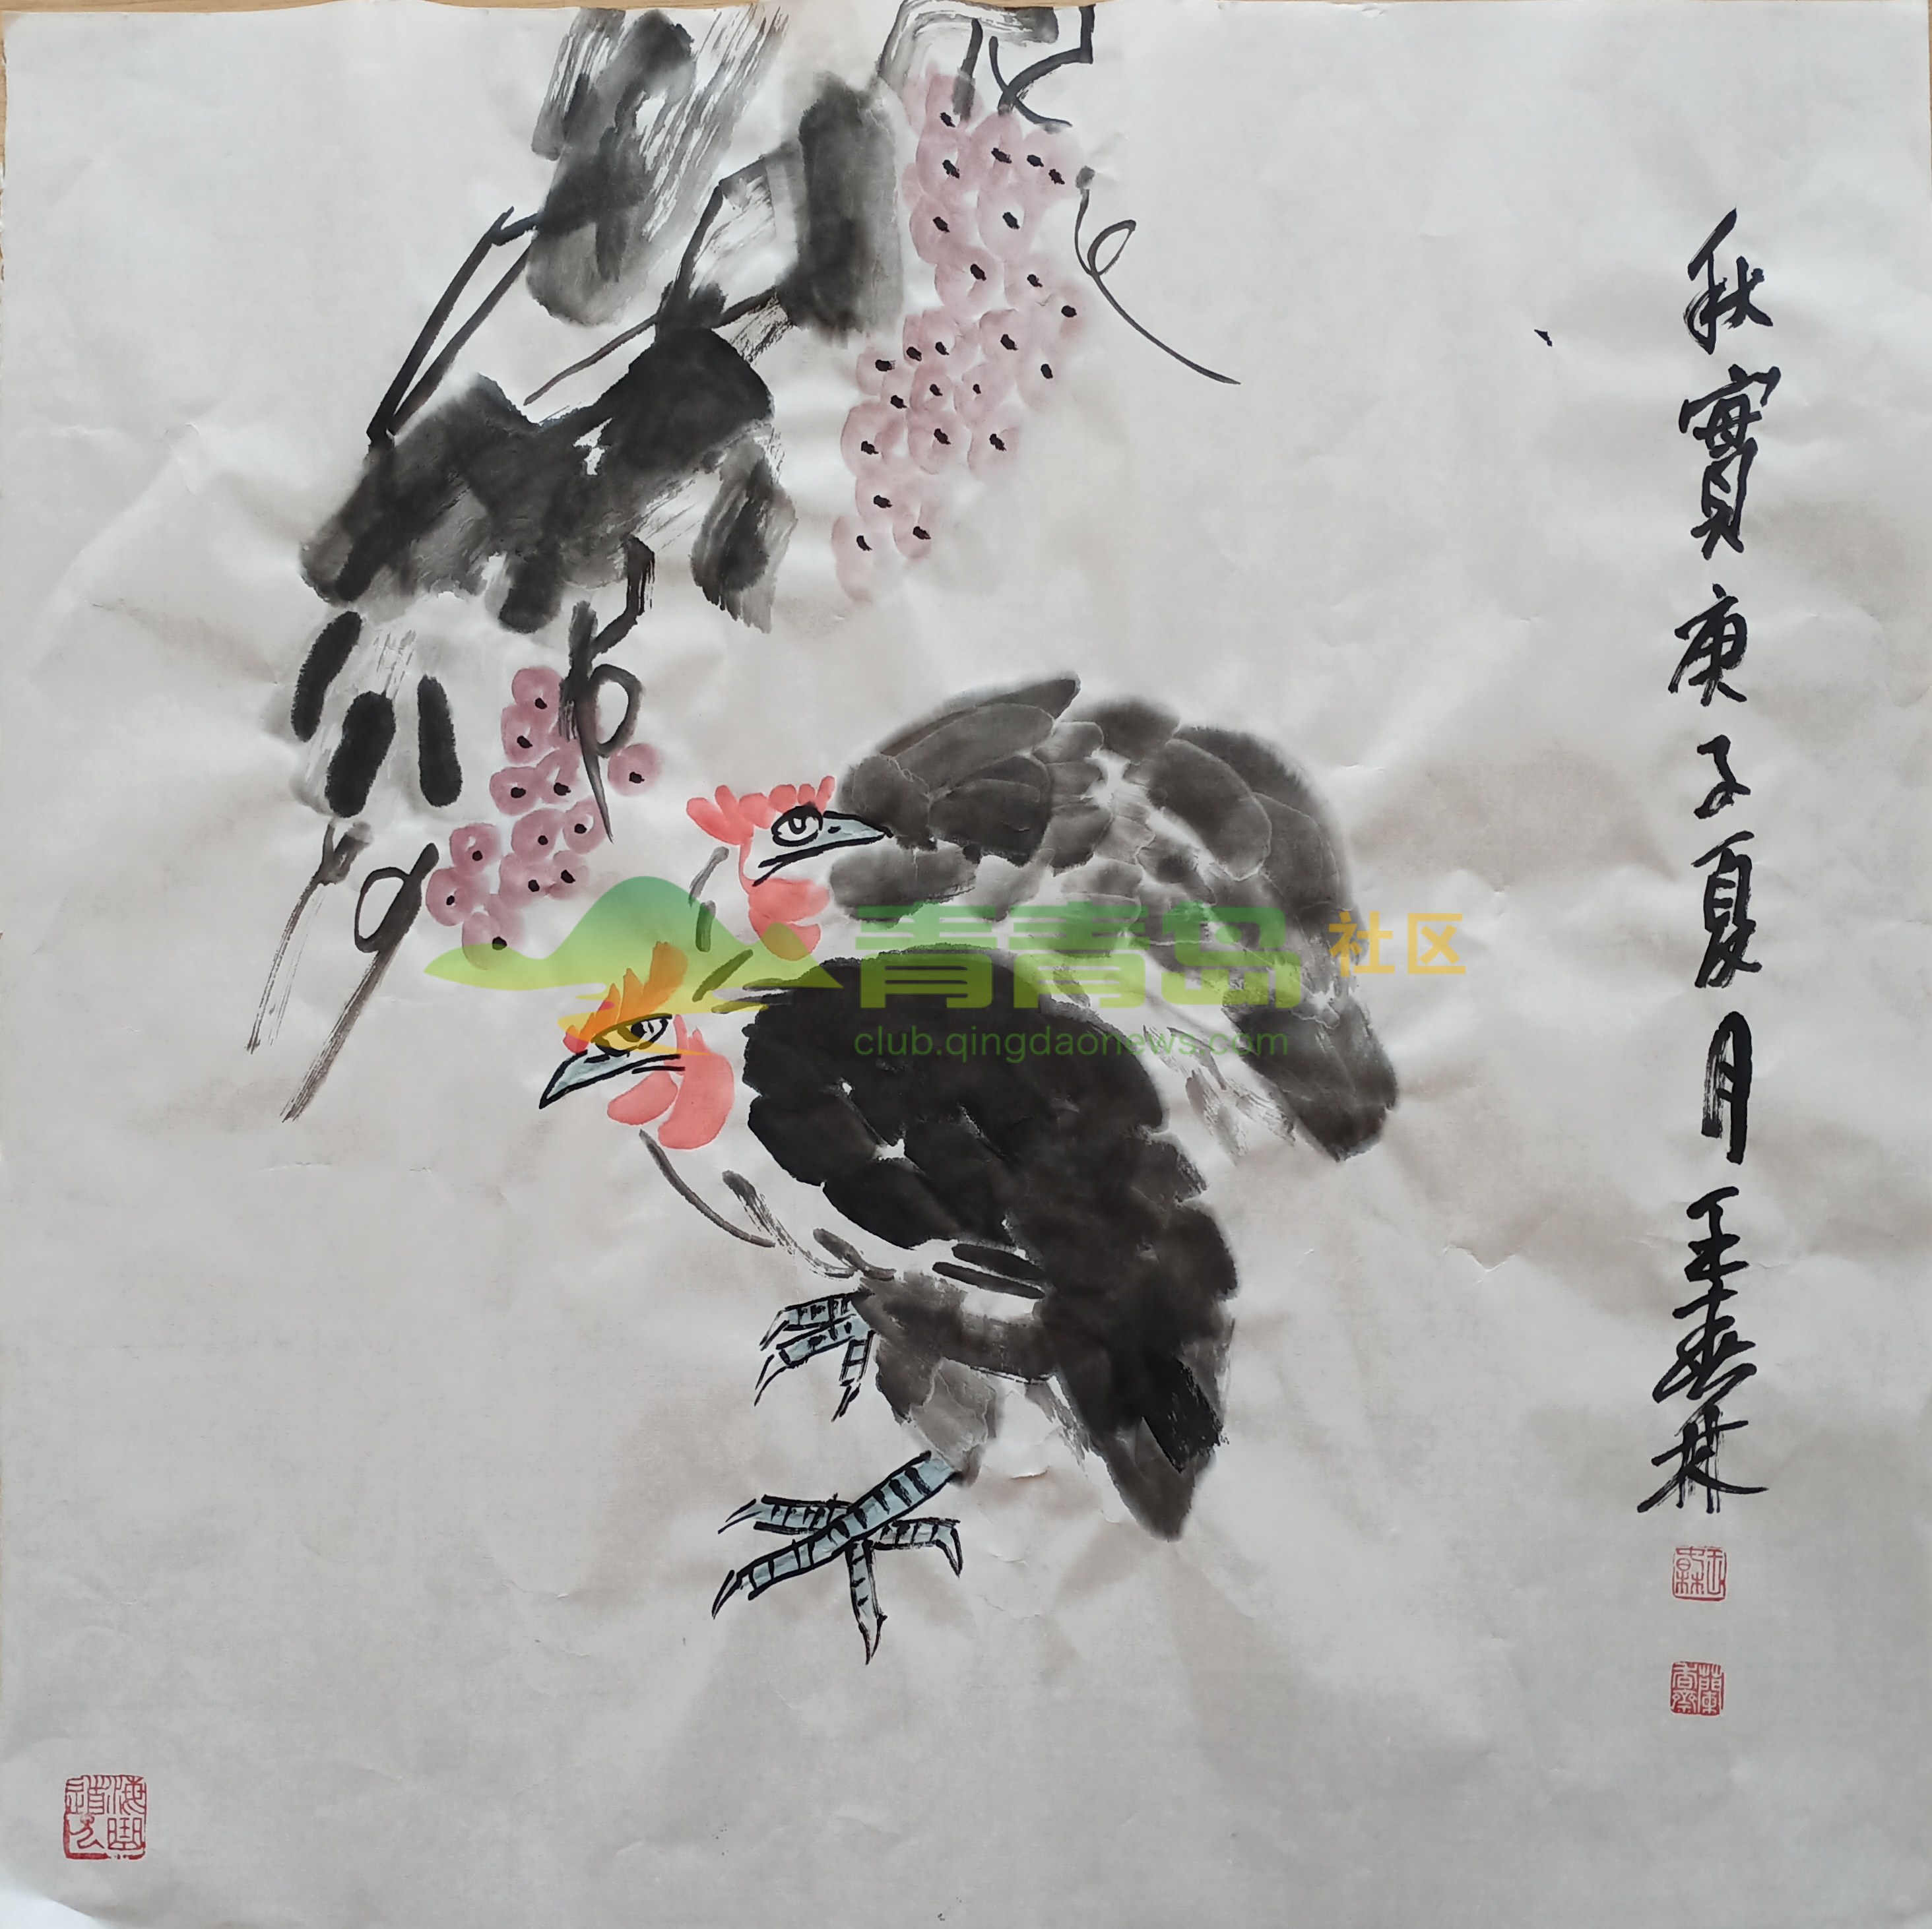 秋實庚子夏月王春林
青青岛社区
club.qingdaonews.com
蘭香齋